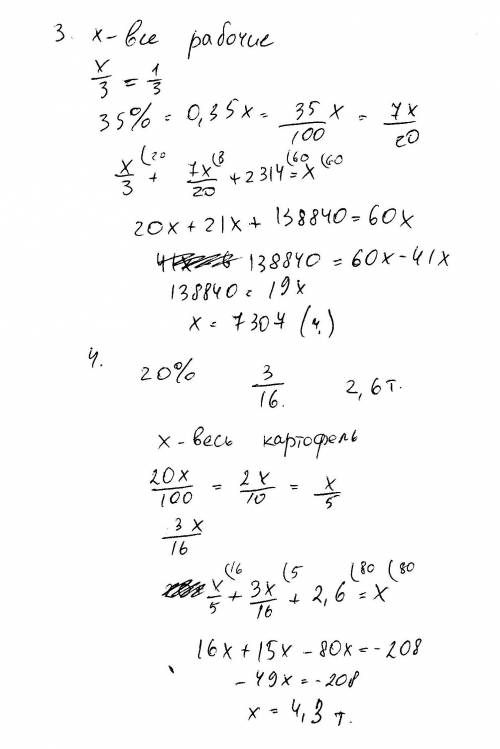 3. x - все рабочие
x/3 = 1/3
35% = 0,35x = 35x/100 = 7x/20
x/3 (20 + 7x/20 (3 + 2314 (60 = x (60
20x + 21x + 138840 = 60x
138840 = 60x - 41x
138840 = 19x
x = 7307 (ч.)
4.
20% 3/16. 2,6 т.
x - весь картофель
20x/100 = 2x/10 = x/5
3x/16
x/5 (16 + 3x/16 (5 + 2,6 (80 = x (80
16x + 15x - 80x = -208
-49x = -208
x = 4,3 т.